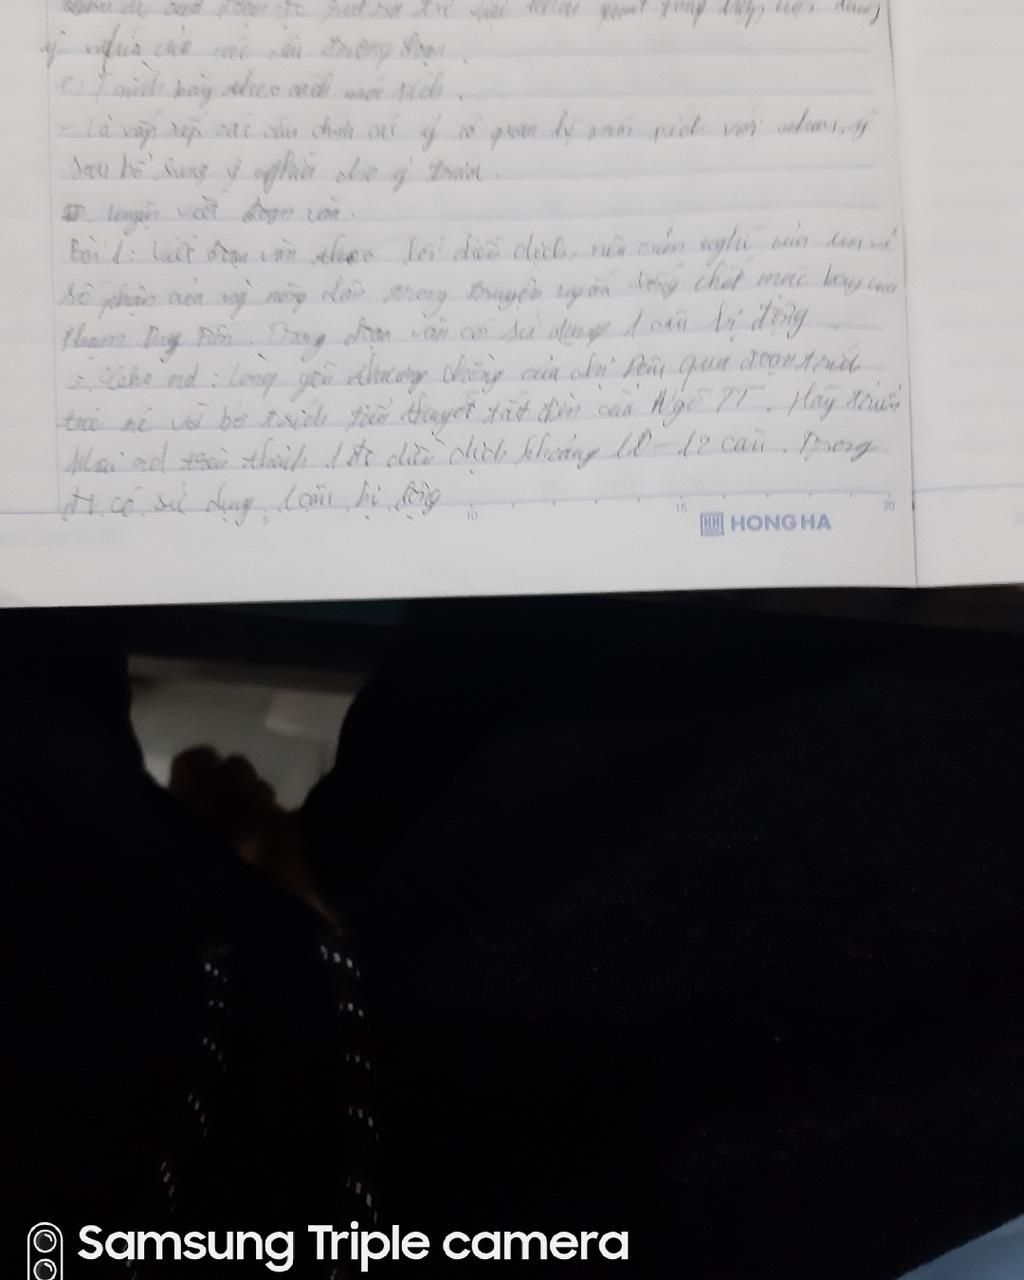 ý nghĩa của mỗi câu trong đoạn.
c) Trình bày theo móc xích.
- Là sắp xếp các câu các ý có quan hệ móc xích với nhau, ý
sau bổ sung ý nghĩa cho ý trước.
II. luyện viết đoạn văn.
Bài 1: Viết đoạn văn theo lối diễn dịch, nêu cảm nghĩ của em về
số phận của người nông dân trong truyện ngắn sống chết mặc bay của
Phạm Duy Tốn. Trong đoạn văn có sử dụng 1 câu bị động
Cho nd: lòng yêu thương chồng của chị Dậu qua đoạn trích
tức nc vỡ bờ trích tiểu thuyết tắt đèn của Ngô TT. Hãy triển
khai nd trên thành 1 đv diễn dịch khoảng 10-12 câu. Trong
đv có sử dụng 1 câu bị động
5 10 15 20
HH HONG HA
Samsung Triple camera